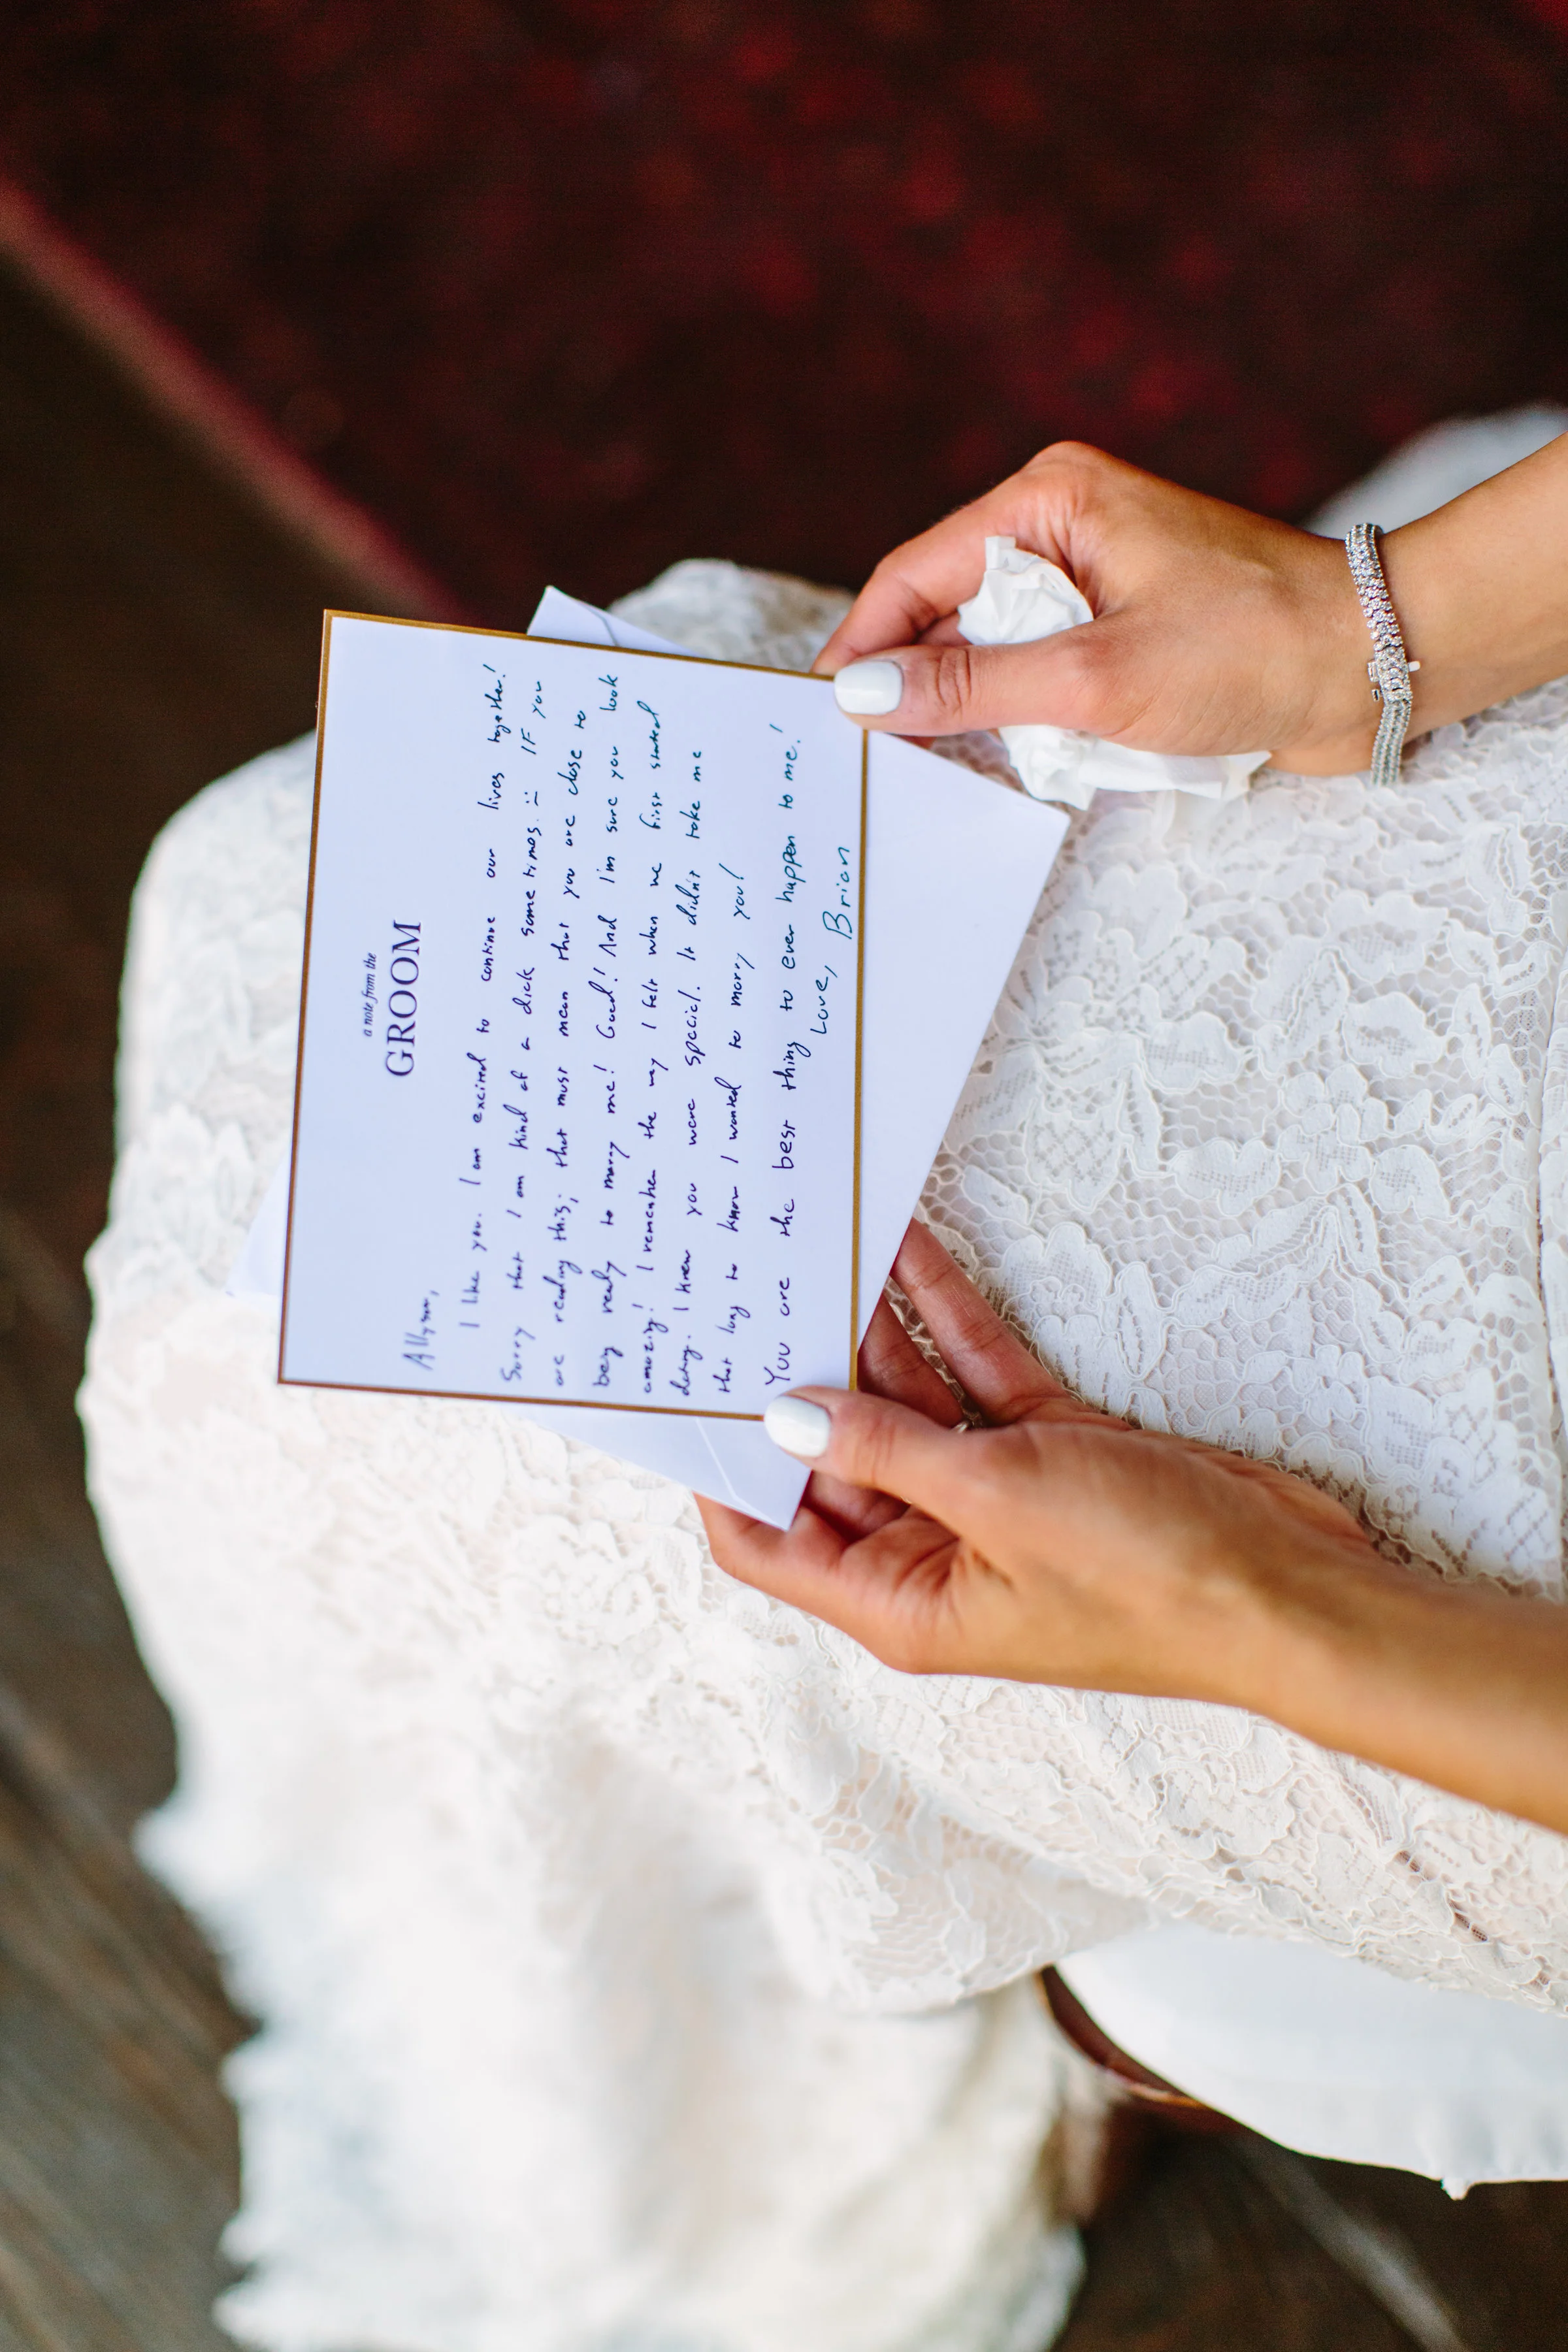 a note from the
GROOM
Allyson,
I like you. I am excited to continue our lives together!
Sorry that I am kind of a dick some times. :) IF you
are reading this, that must mean that you are close to
being ready to marry me! Good! And I'm sure you look
amazing! I remember the way I felt when we first started
dating. I knew you were special. It didn't take me
that long to know I wanted to marry you!
You are the best thing to ever happen to me!
Love, Brian